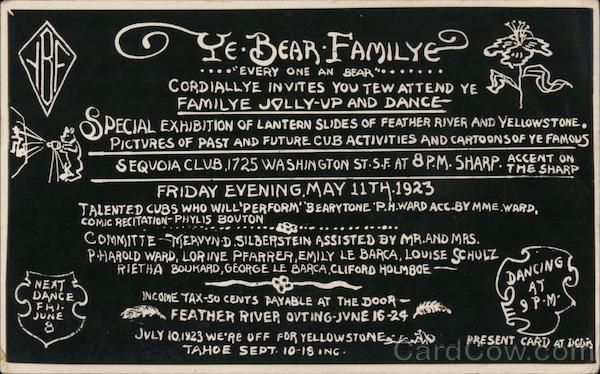 YBF
YE·BEAR·FAMILYE
"EVERY ONE AN BEAR"
CORDIALLYE INVITES YOU TEW ATTEND YE
FAMILYE JOLLY-UP AND DANCE-
SPECIAL EXHIBITION OF LANTERN SLIDES OF FEATHER RIVER AND YELLOWSTONE.
PICTURES OF PAST AND FUTURE CUB ACTIVITIES AND CARTOONS OF YE FAMOUS
SEQUOIA CLUB, 1725 WASHINGTON ST. S.F. AT 8 P.M. SHARP. ACCENT ON
THE SHARP
FRIDAY EVENING, MAY 11TH, 1923
TALENTED CUBS WHO WILL "PERFORM" BEARYTONE P.H. WARD ACC. BY MME. WARD,
COMIC RECITATION-PHYLIS BOUTON
COMMITTE-MERVYN·D. SILBERSTEIN ASSISTED BY MR. AND MRS.
P. HAROLD WARD, LORINE PFARRER, EMILY LE BARCA, LOUISE SCHULZ
RIETHA BOUKARD, GEORGE LE BARCA, CLIFORD HOLMBOE-
NEXT
DANCE
FRI.
JUNE
8
DANCING
AT
9 P.M.
INCOME TAX-50 CENTS PAYABLE AT THE DOOR-
FEATHER RIVER OUTING-JUNE 16-24
JULY 10, 1923 WE'RE OFF FOR YELLOWSTONE
TAHOE SEPT. 10-18 INC.
PRESENT CARD AT DOOR
CardCow.com